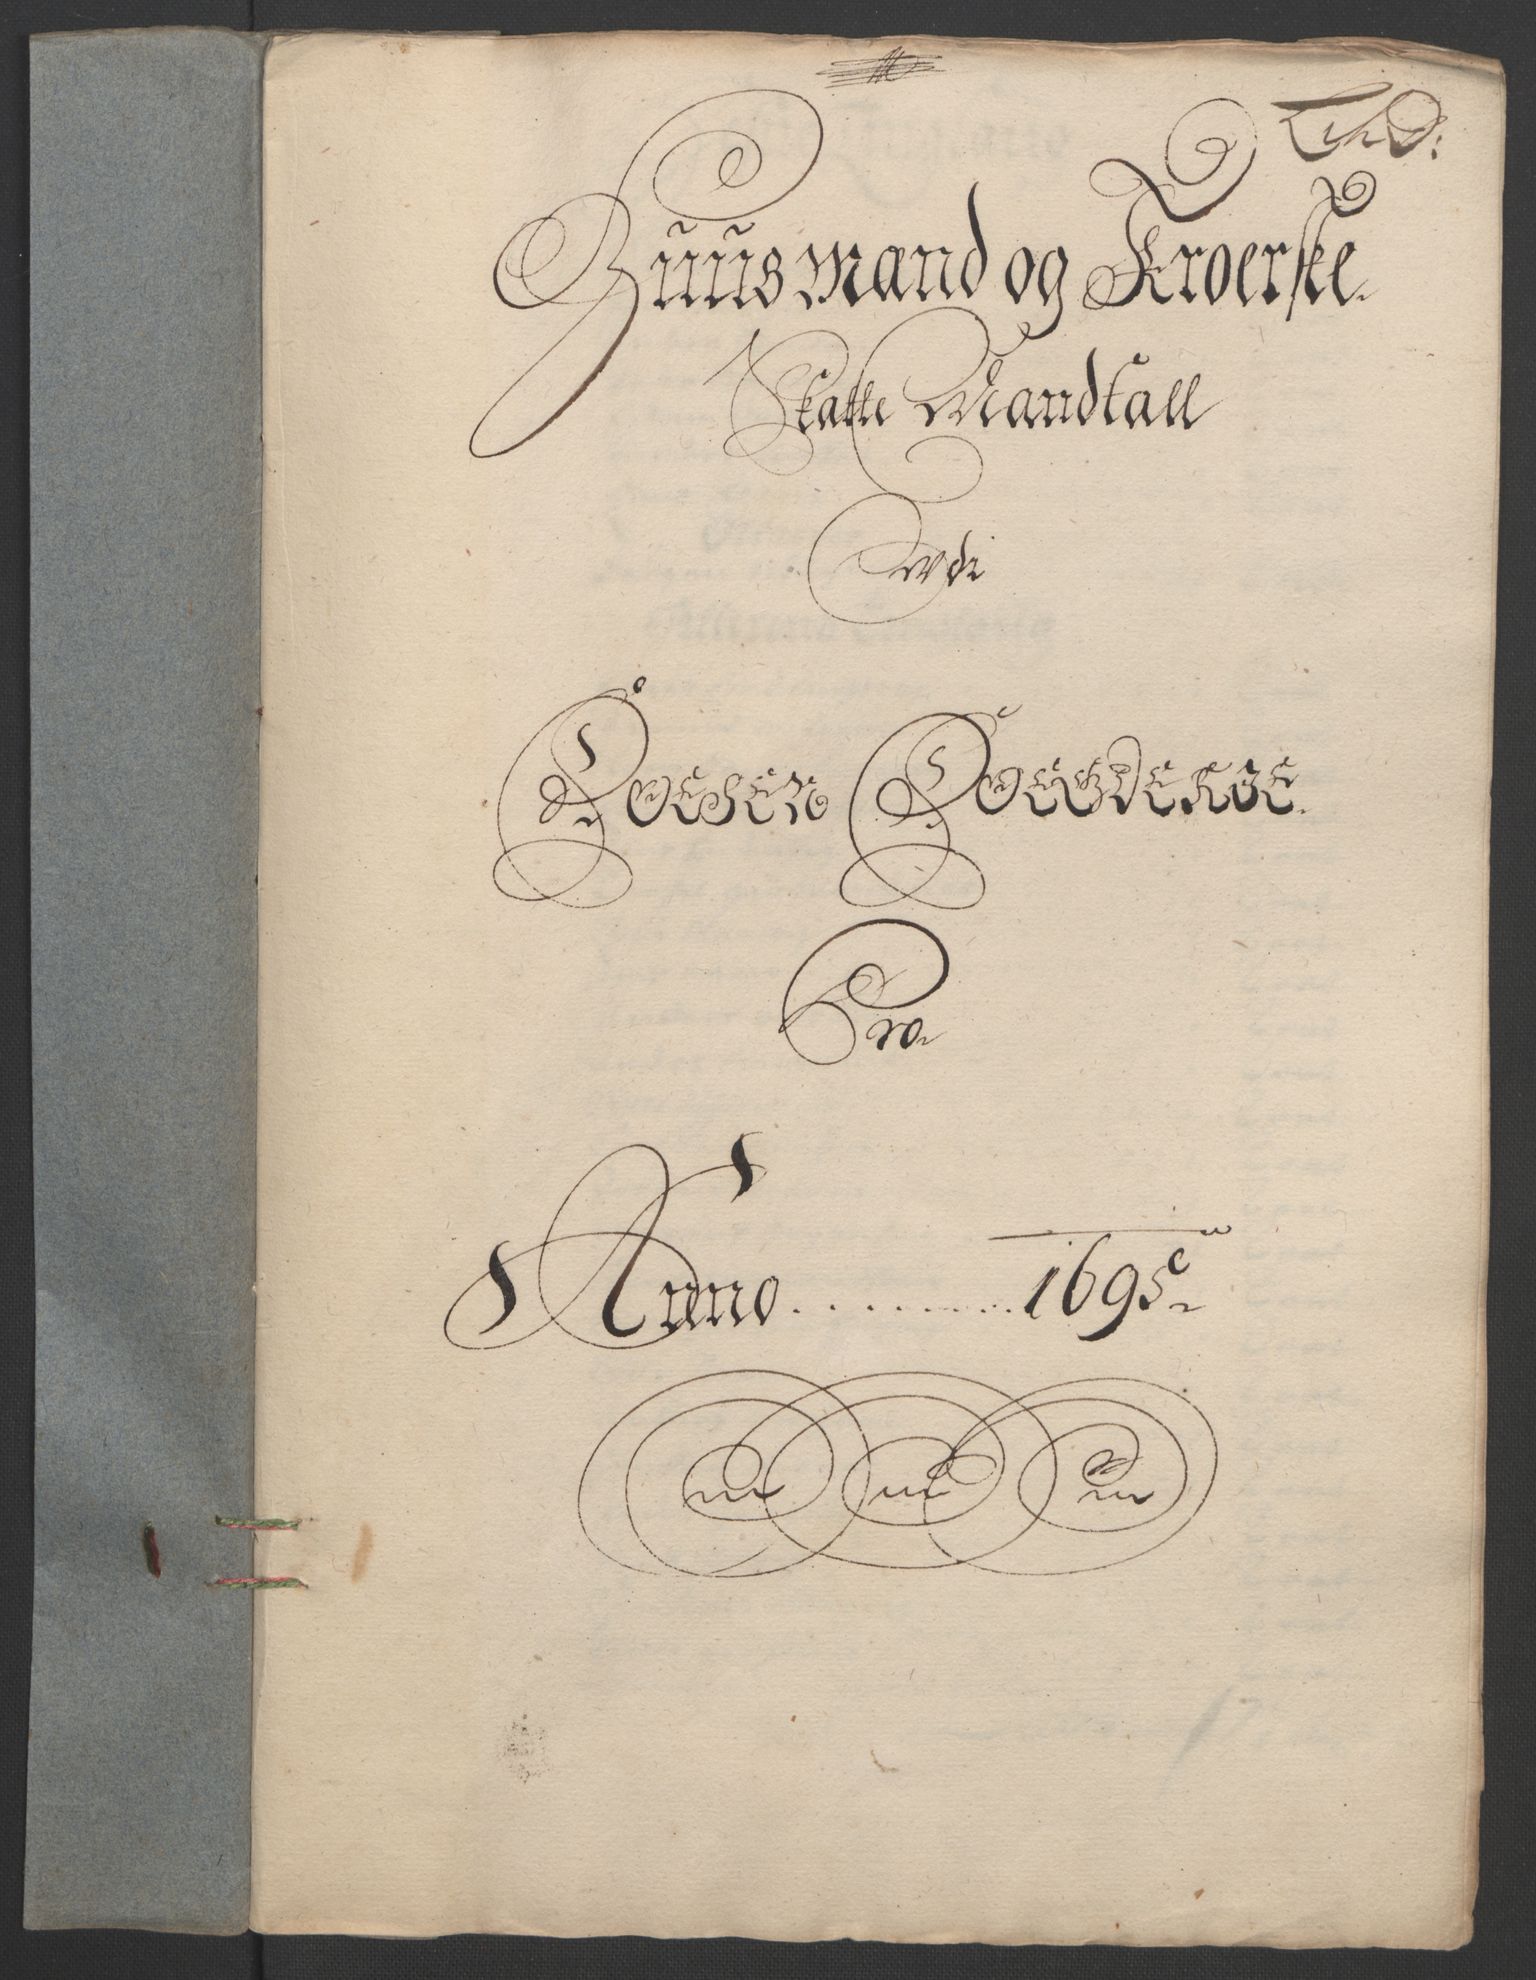 Huusmand og Kroerske
Skatte Mandtall
wdi
Foesen Foegderje
Pro
Anno ......... 1695